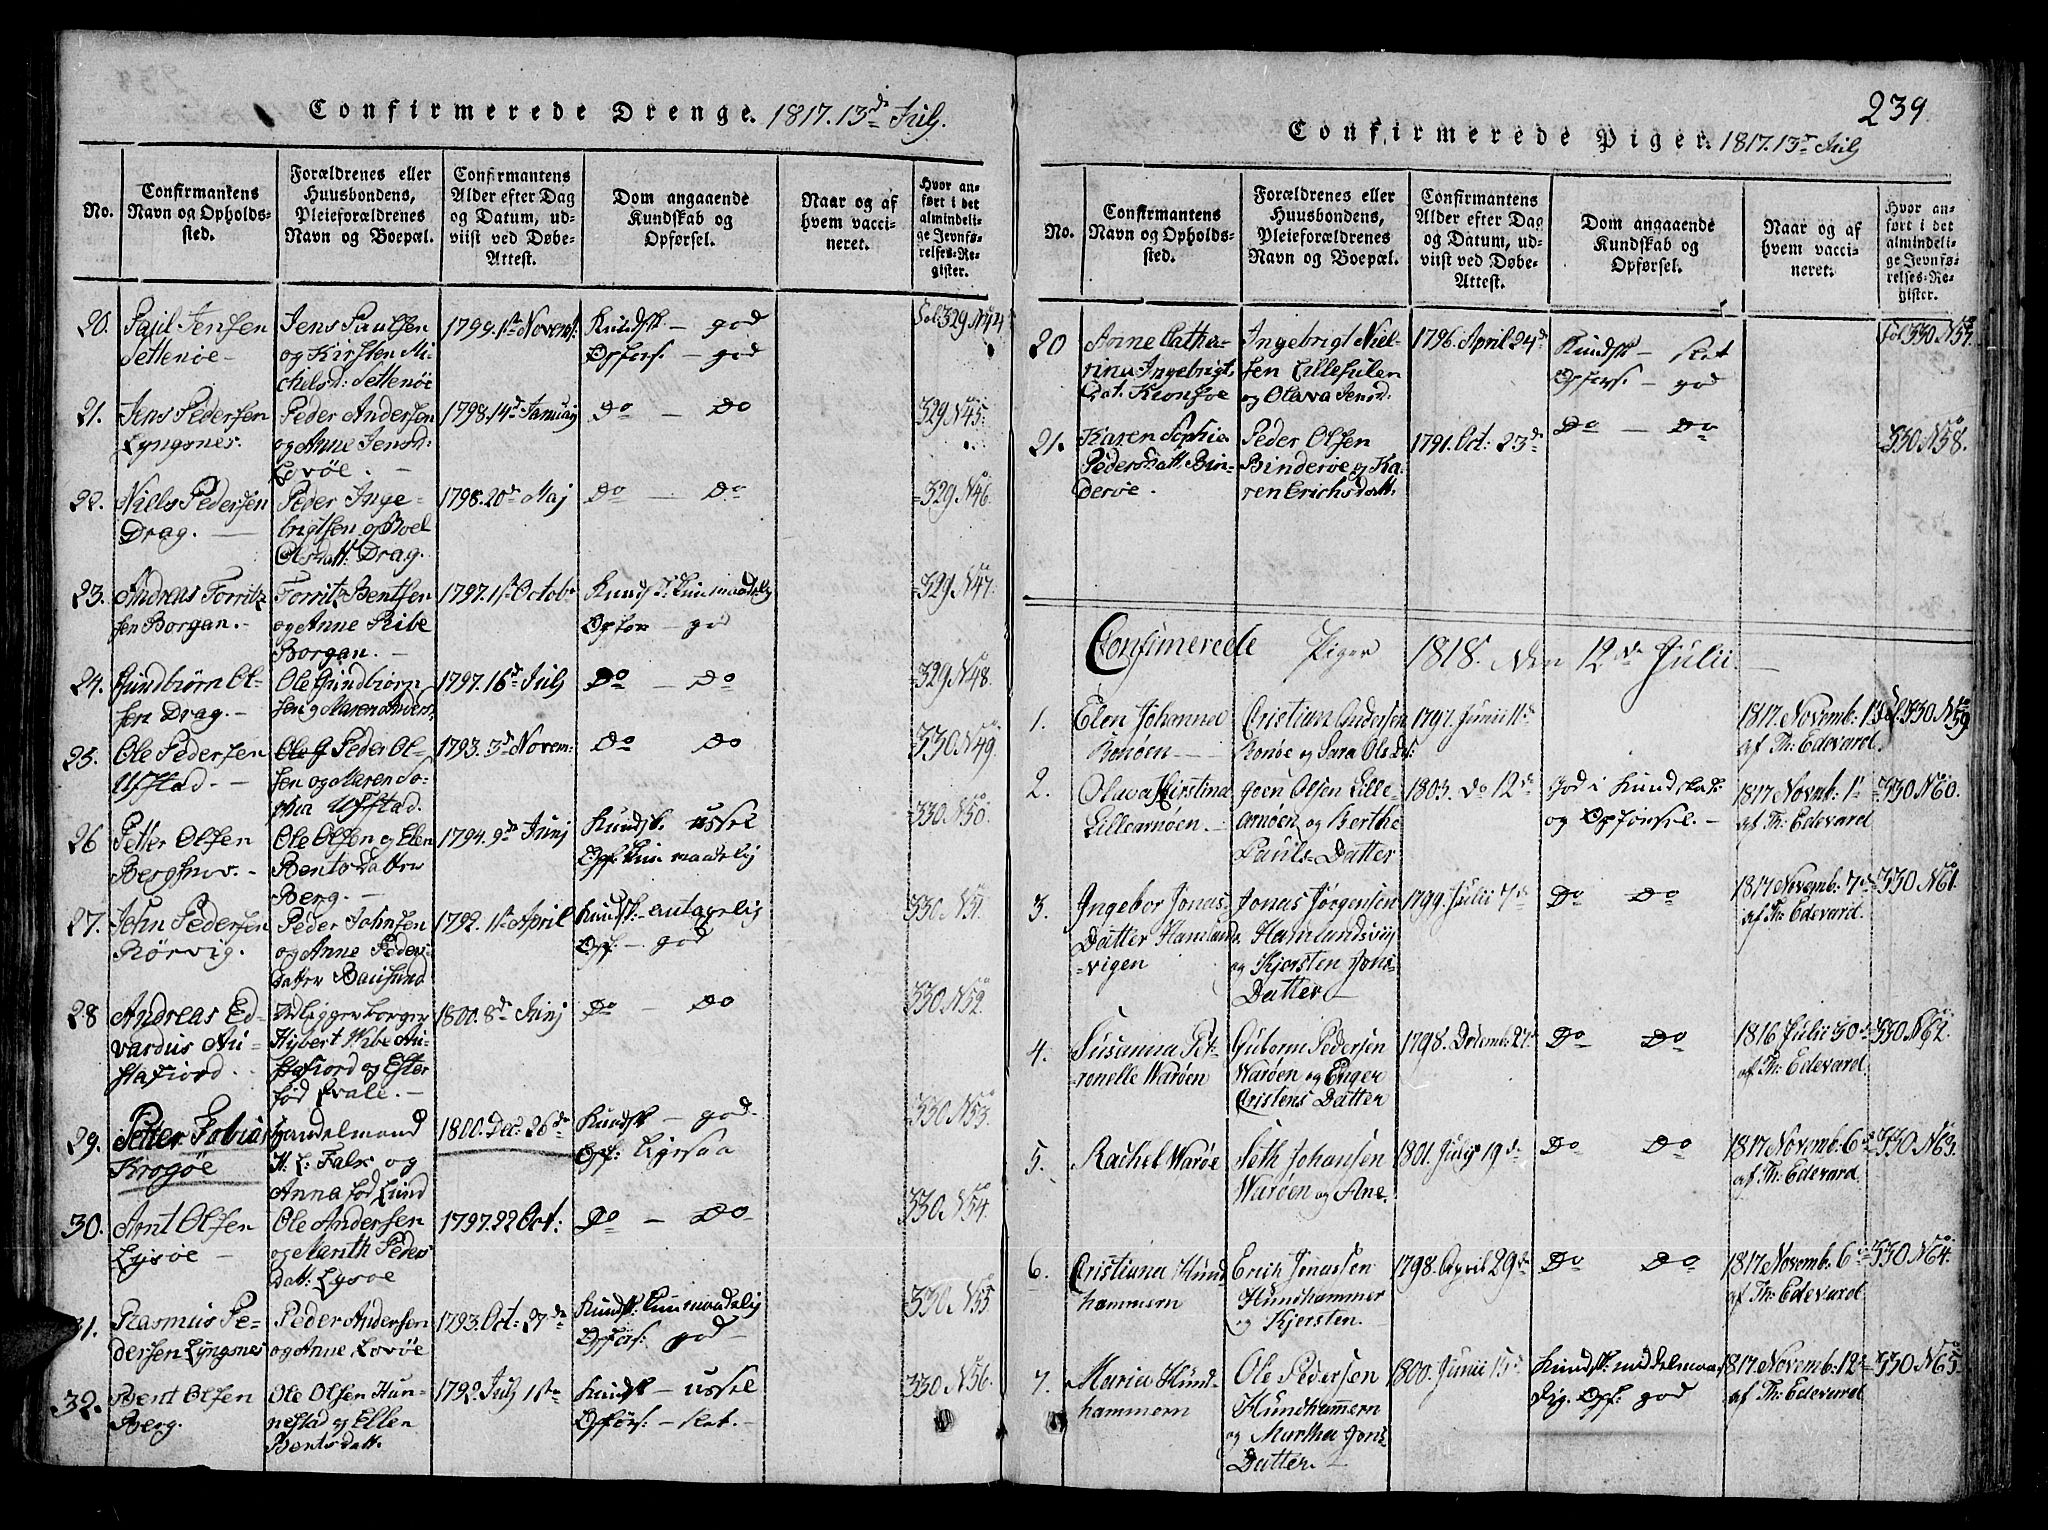 Confirmerede Drenge. 1817. 13de Julj.
No.
Confirmantens
Navn og Opholds-
sted.
Forældrenes eller
Huusbondens,
Pleieforældrenes
Navn og Boepæl.
Confirmantens
Alder efter Dag
og Datum, ud-
viist ved Døbe-
Attest.
Dom angaaende
Kundskab og
Opførsel.
Naar og af
hvem vacci-
neret.
Hvor an-
ført i det
almindeli-
ge Jevnfø-
relses-Re-
gister.
20. Paul Jensen
Settenöe
Jens Paulsen
og Kirsten Mi-
chelsd: Settenöe
1799. 1ste Novemb:
Kundsk — god
Opførs. — god
Fol 329 No 44
21. Jens Pedersen
Lyngsnes.
Peder Andersen
og Anne Jensd:
Lovöe. —
1798. 14de Januarj
Do — Do
329 No 45.
22. Niels Pedersen
Drag. —
Peder Inge-
brigtsen og Boel
Olsdatt: Drag.
1798. 20de Maj
Do — Do
329 No 46.
23. Andreas Forritz-
sen Borgan. —
Forritz Bentsen
og Anne Ribe
Borgan. —
1797. 1ste Octob:
Kundsk: kun maadelig
Opför — god
329 No 47.
24. Gundbiörn Ol-
sen Drag. —
Ole Gundbiörn-
sen og Maren Anders
1797. 16de Julj
Do — Do
329 No 48.
25. Ole Pedersen
Ufstad. —
Peder Ol-
sen og Maren So-
phia Ufstad.
1793. 3de Novem:
Do Do
330 No 49.
26 Petter Olsen
Bergsnov. —
Ole Olsen og Elen
Bentsdatter
Berg. —
1794. 9de Junj
Kundsk. ussel
Opf: kun maadelig
330 No 50.
27. John Pedersen
Rörvig.
Peder Johnsen
og Anne Peders
datter Bausund
1792. 1ste April
Kundsk. — antagelig
Opf: — god
330 No 51.
28 Andreas Ed-
vardus Au-
stafiord. —
Udligger borger
Hybert Wibe Au-
stafiord og Ester
fød Qvale. —
1800. 8de Junj
Do — Do
330 No 52.
29. Petter Tobias
Krogöe
Handelsmand
H. L. Falk og
Anna fød Lund
1800. Dec: 26de
Kundsk — god
Opf: Ligesaa
330 No 53.
30. Arnt Olsen
Lysöe —
Ole Andersen
og Marith Peders
datt: Lysöe
1797. 22 Oct:
Do — Do
330 No 54.
31. Rasmus Pe-
dersen Lyngsnes
Peder Andersen
og Anne Lovöe
1793. Oct: 27de
Kundsk: kun maadelig
Opförs: god —
330 No 55
32. Bent Olsen
Berg.
Ole Olsen Hun-
nestad og Ellen
Bentsdatt:
1792 Julj 1ste
Kundsk — ussel
Opförs: — slet. —
330 No 56.
239
Confirmerede Piger. 1817. 13de Julj
No.
Confirmantens
Navn og Opholds-
sted.
Forældrenes eller
Huusbondens,
Pleieforældrenes
Navn og Boepæl.
Confirmantens
Alder efter Dag
og Datum, ud-
viist ved Døbe-
Attest.
Dom angaaende
Kundskab og
Opførsel.
Naar og af
hvem vacci-
neret.
Hvor an-
ført i det
almindeli-
ge Jevnfø-
relses-Re-
gister.
20 Anne Catha-
rina Ingebrigt.
Dat. Kionsöe
Ingebrigt Niel-
sen Lillesulen
og Olava Jensd:
1796. April 24de
Kundsk — slet
Opførs: — god
Fol 330 No 57.
21. Karen Sophie
Pedersdatt. Bin-
deröe.
Peder Olsen
Binderöe og Ka-
ren Erichsdatt.
1791. Oct: 23de
Do — Do
330 No 58.
Confirmerede Piger 1818. den 12de Julii —
1. Elen Johanna
Ronöen —
Cristian Andersen
Ronöe og Sara Olsd:
1797. Junii 11de
1817. Novemb: 1
af Th: Edevard.
Fol. 330 No 59
2. Olava Kirstina
Lillearnöen. —
Joen Olsen Lille-
arnöen og Berthe
Pauls-Datter
1803. do 12de
God i Kundskab
og Opførsel. —
1817 Novmb: 1
af Th: Edevard
330 No 60.
3. Ingebor Jonas
Datter Hamlands-
vigen
Jonas Jörgensen
Hamlandsviig
og Kjersten Jons-
Datter —
1799. Julii 7de
Do Do
1817 Novemb: 7de
af Th: Edevard.
330 No 61.
4. Susanna Pet-
ronelle Waröen
Guborm Pedersen
Waröen og Enger
Cristens Datter
1798. Decemb: 27de
Do Do
1816 Julii 30de
af Th: Edevard.
330 No 62.
5. Rachel Waröe
Seth Johansen
Waröen og Ane.
1801. Julij 19de
Do Do
1817 Novemb: 6de
af Th: Edevard.
330 No 63.
6. Cristiana Hund
hammern
Erich Jonassen
Hundhammer
og Kjersten.
1798. April 29de
Do Do
1817 Novemb: 6de
af Th: Edevard
330 No 64.
7. Maria Hund-
hammern
Ole Pedersen
Hundhammern
og Martha Jons
Datter. —
1800. Junii 15de
Kundsk: middelmaa-
dig. Opf: god
1817 Novemb: 12de
af Th: Edevard
330 No 65.